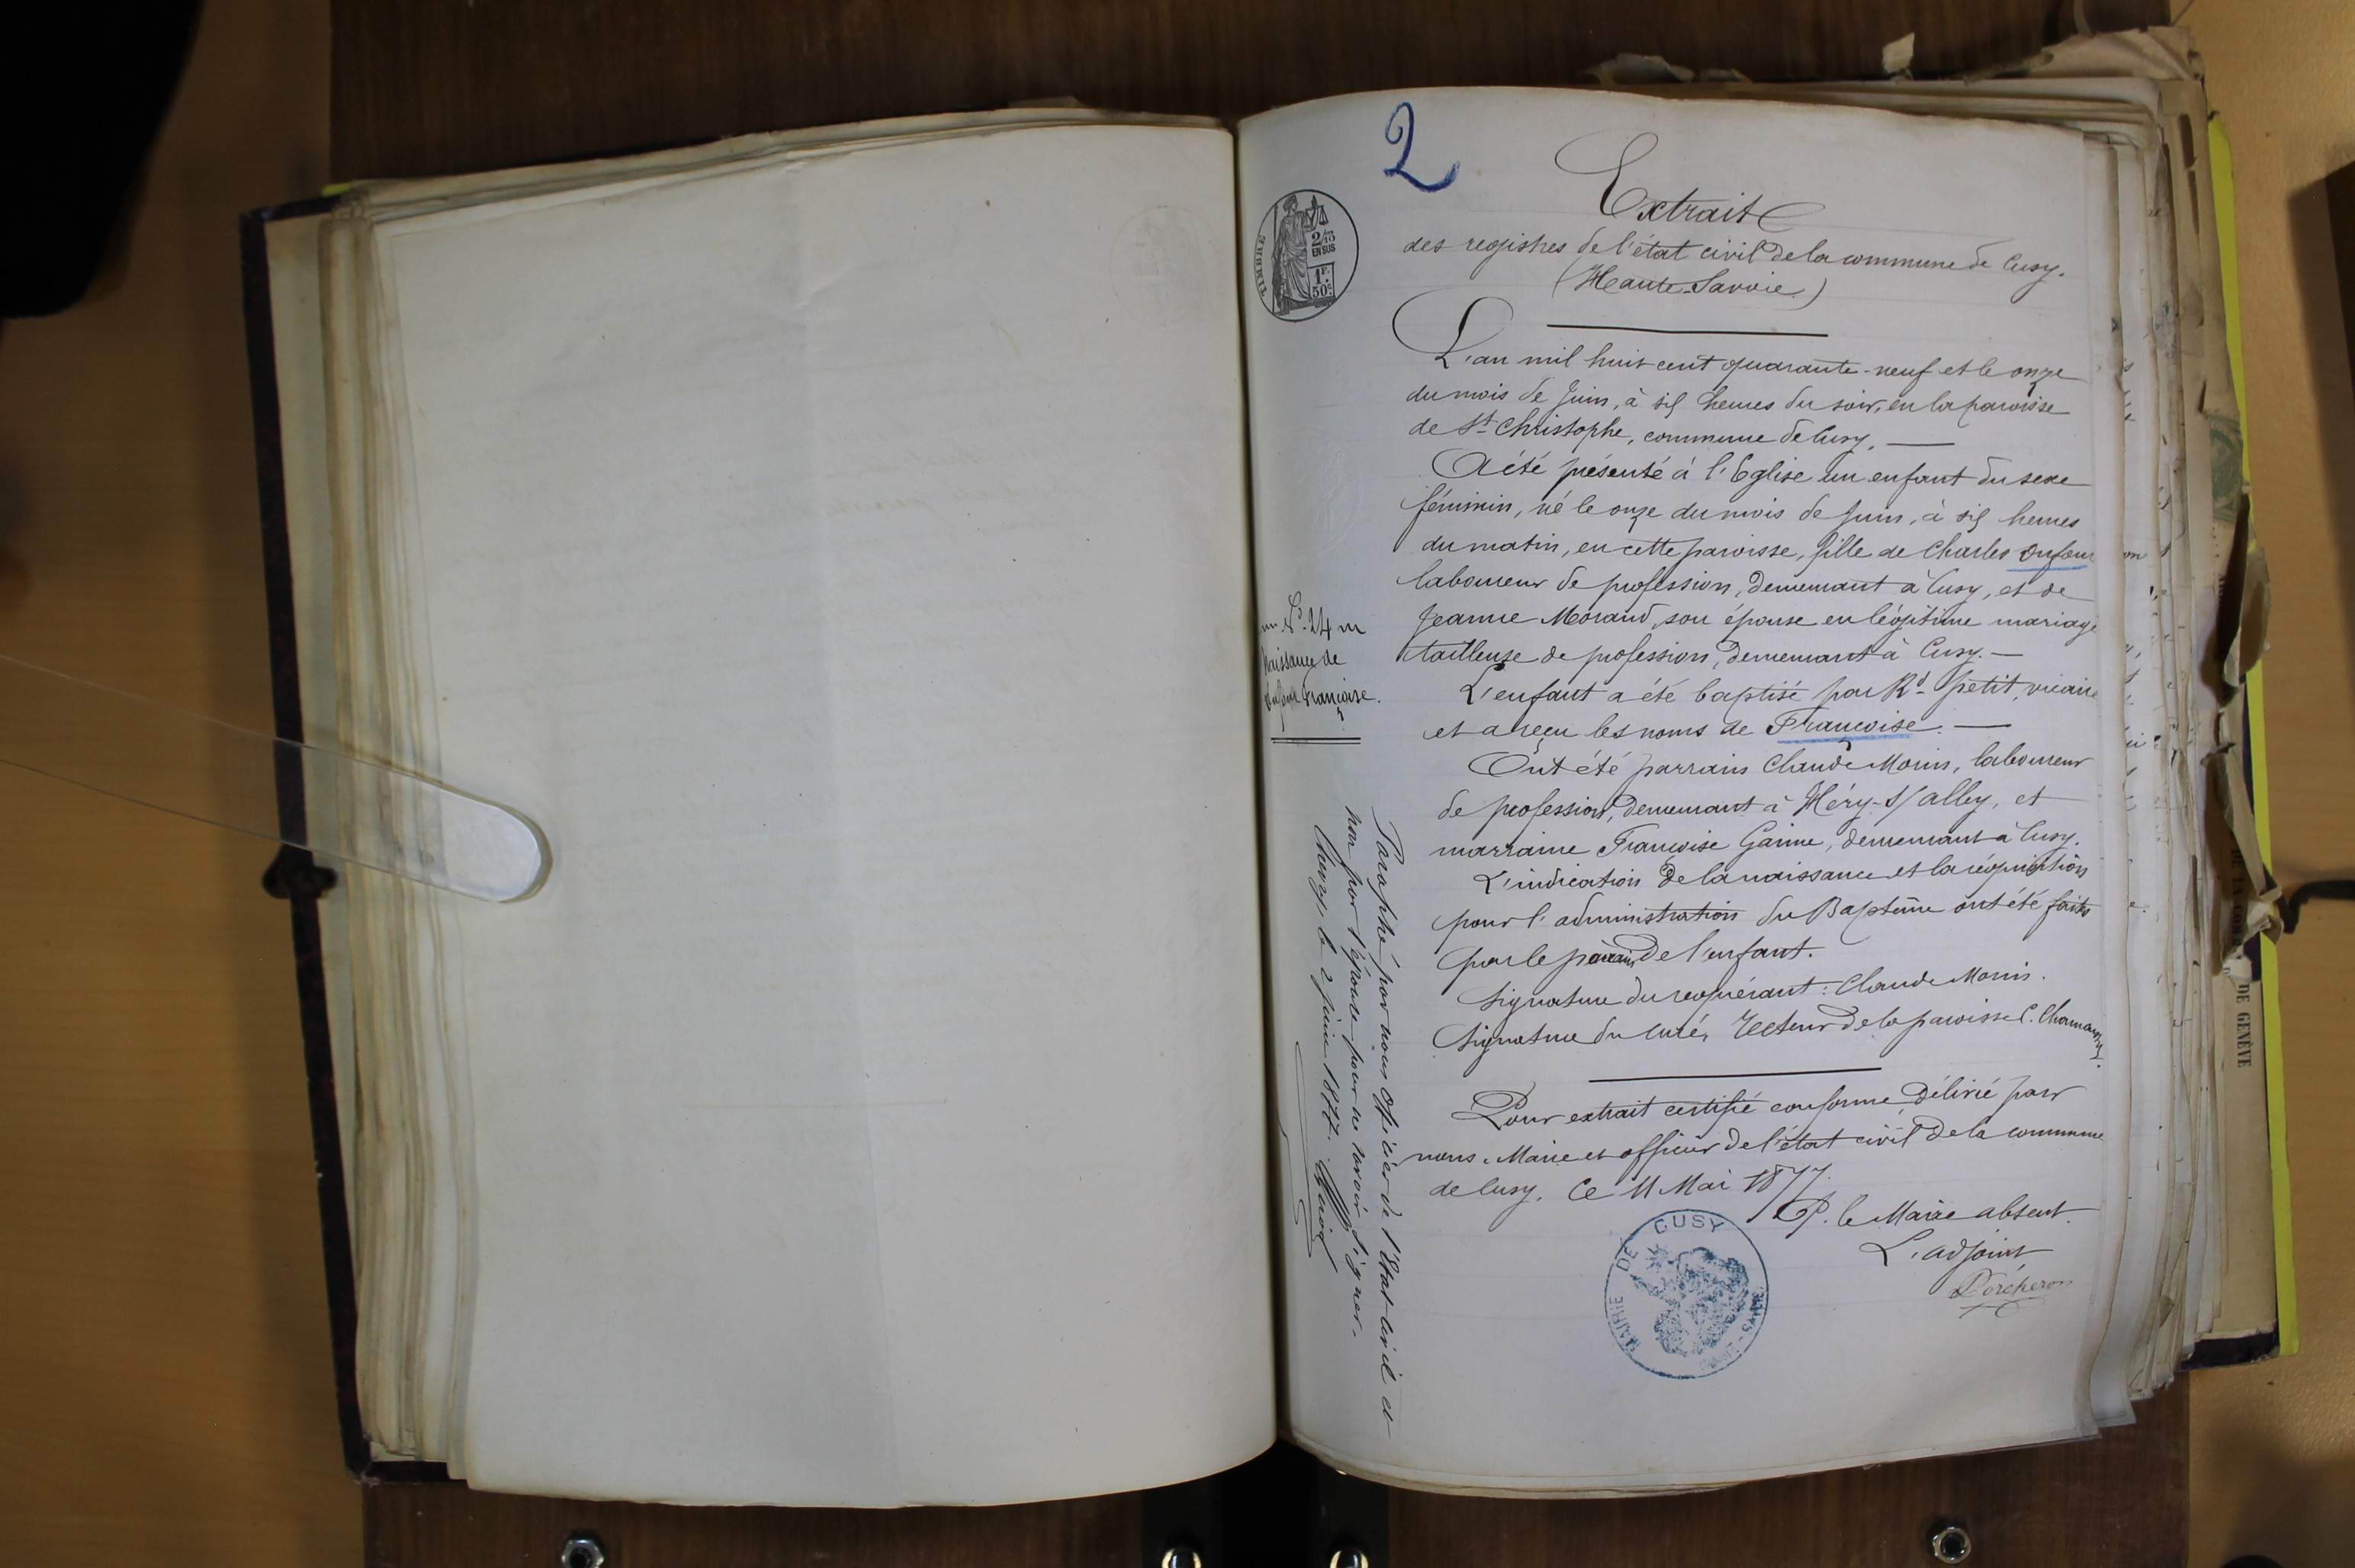 2
TIMBRE
2/10
EN SUS
1F.
50c.
Extrait
des registres de l'état civil de la commune de Cusy.
(Haute-Savoie)
L'an mil huit cent quarante-neuf et le onze
du mois de Juin, à six heures du soir, en la paroisse
de St Christophe, commune de Cusy. —
A été présenté à l'Eglise un enfant du sexe
féminin, né le onze du mois de Juin, à six heures
du matin, en cette paroisse, fille de Charles Dufour
laboureur de profession, demeurant à Cusy, et de
Jeanne Morand, son épouse en légitime mariage
tailleuse de profession, demeurant à Cusy. —
L'enfant a été baptisé par Rd petit, vicaire
et a reçu les noms de Françoise. —
Ont été parrain Claude Monin, laboureur
de profession, demeurant à Héry-s/alby, et
marraine Françoise Ganne, demeurant à Cusy.
L'indication de la naissance et la réquisition
pour l'administration du Baptême ont été faits
par le parrain de l'enfant.
Signature du requérant : Claude Monin.
Signature du Curé, Recteur de la paroisse C.
Pour extrait certifié conforme, délivré par
nous, Maire et officier de l'état civil de la commune
de Cusy. Ce 11 Mai 1877.
P. le Maire absent.
L'adjoint
Porcheron
MAIRIE DE CUSY
No 24
Naissance de
Dufour Françoise.
Paraphé par nous Officier de l'Etat-civil et
non par l'épouse pour ne savoir signer.
le 2 juin 1877.
DE GENÈVE